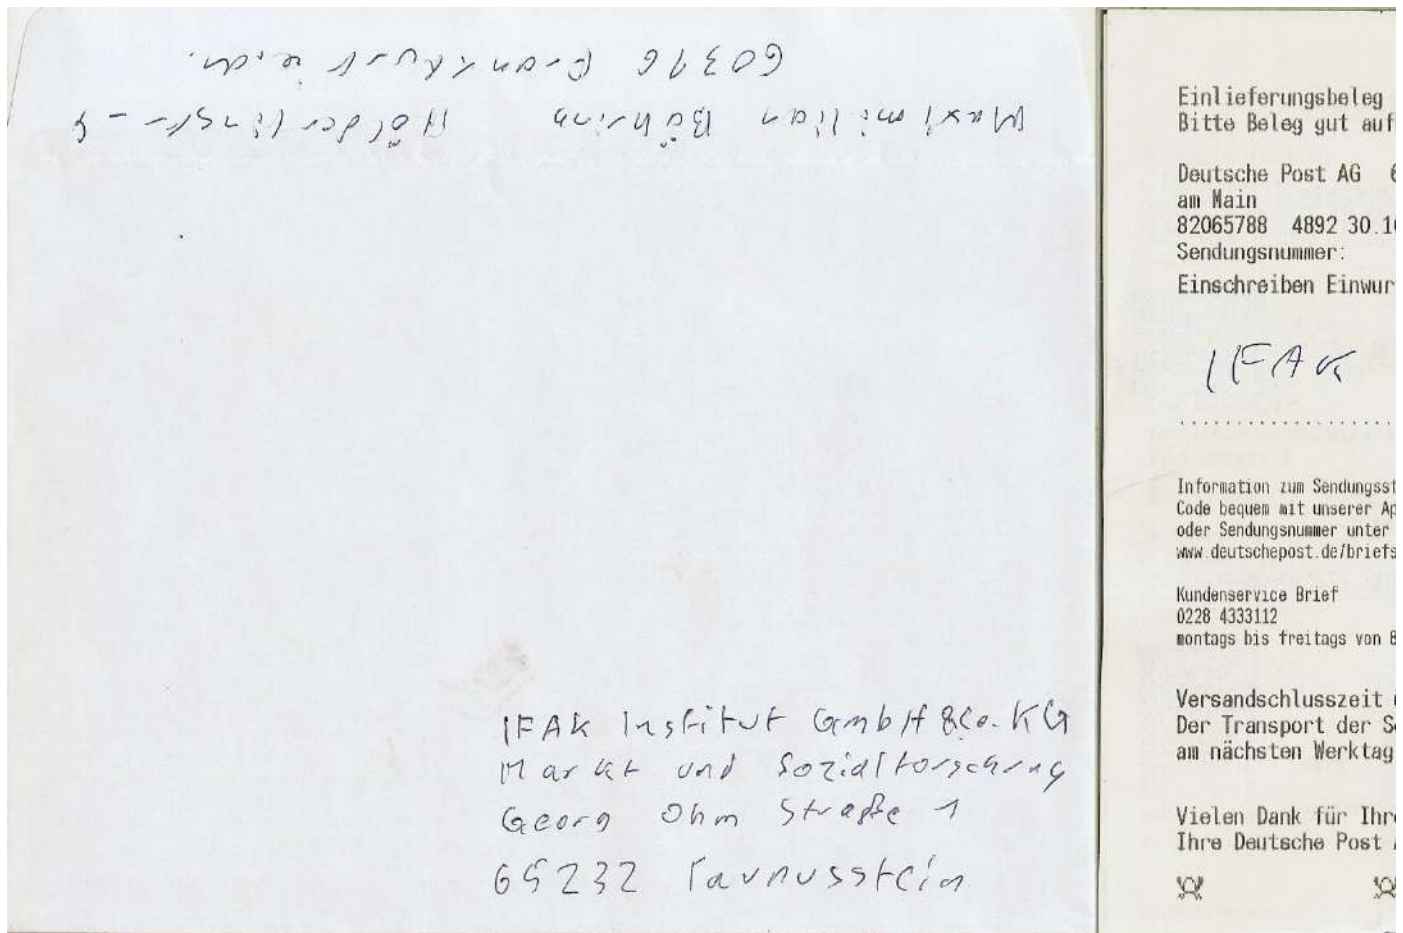 Maximilian Bähring Hölderlinstr. 4
60316 Frankfurt
IFAK Institut GmbH &Co. KG
Markt und Sozialforschung
Georg Ohm Straße 1
65232 Taunusstein
Einlieferungsbeleg
Bitte Beleg gut auf
Deutsche Post AG 6
am Main
82065788 4892 30.1
Sendungsnummer:
Einschreiben Einwur
IFAK
Information zum Sendungsst
Code bequem mit unserer Ap
oder Sendungsnummer unter
www.deutschepost.de/briefs
Kundenservice Brief
0228 4333112
montags bis freitags von 8
Versandschlusszeit
Der Transport der S
am nächsten Werktag
Vielen Dank für Ihr
Ihre Deutsche Post